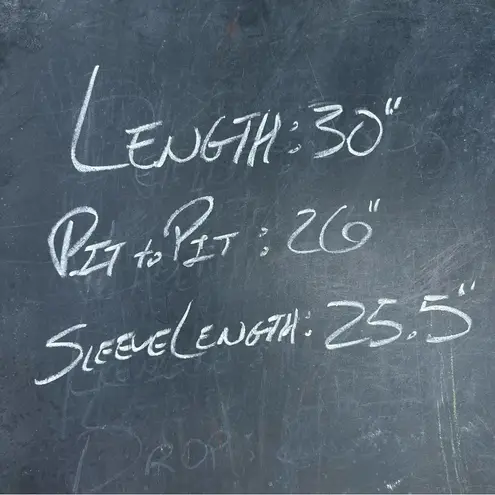 LENGTH: 30"
PIT to PIT: 26"
SLEEVE LENGTH: 25.5"
DROP: